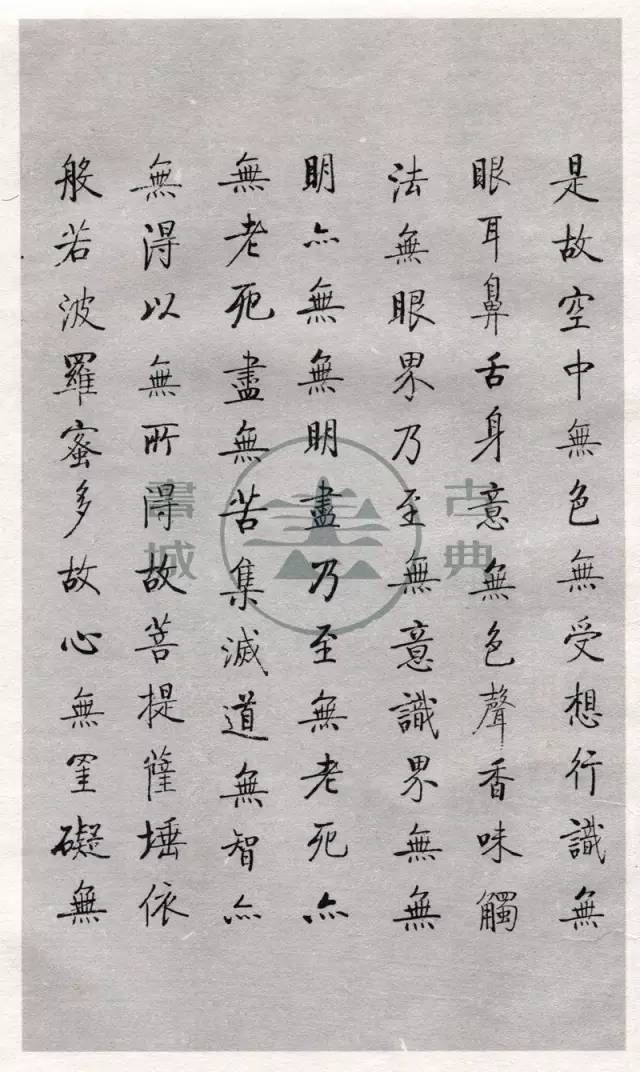 是故空中無色無受想行識無
眼耳鼻舌身意無色聲香味觸
法無眼界乃至無意識界無無
明亦無無明盡乃至無老死亦
無老死盡無苦集滅道無智亦
無得以無所得故菩提薩埵依
般若波羅蜜多故心無罣礙無
古典
書城